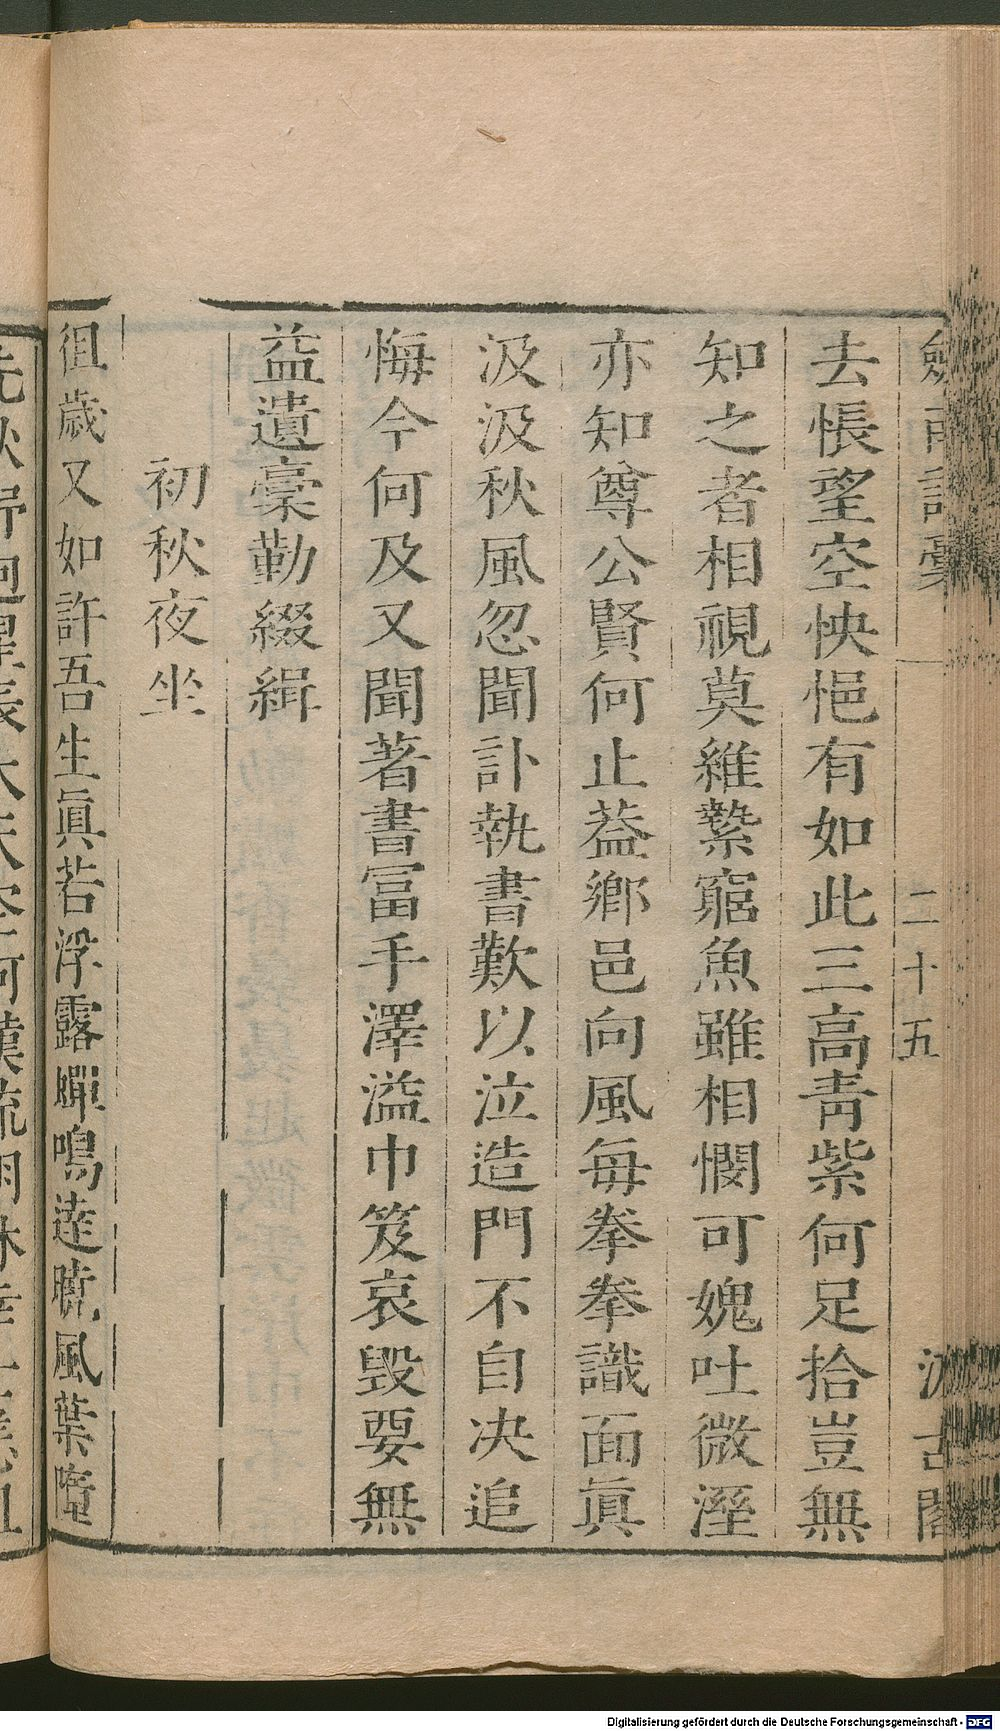 劍南詩稾 二十五 汲古閣
去悵望空怏悒有如此三高青紫何足拾豈無
知之者相視莫維縶窮魚雖相憫可媿吐微溼
亦知尊公賢何止葢鄉邑向風每拳拳識面眞
汲汲秋風忽聞訃執書歎以泣造門不自决追
悔今何及又聞著書冨手澤溢巾笈哀毁要無
益遺稾勤綴緝
初秋夜坐
徂歳又如許吾生眞若浮露蟬鳴逹曉風葉墮
先秋
Digitalisierung gefördert durch die Deutsche Forschungsgemeinschaft - DFG